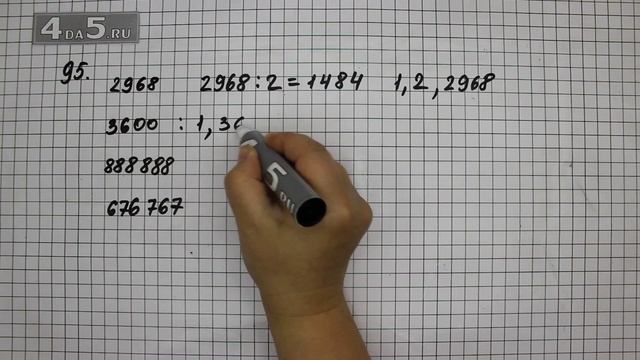 4DA5.RU
95.
2968 2968 : 2 = 1484 1, 2, 2968
3600 : 1, 36
888 888
676 767
5.RU